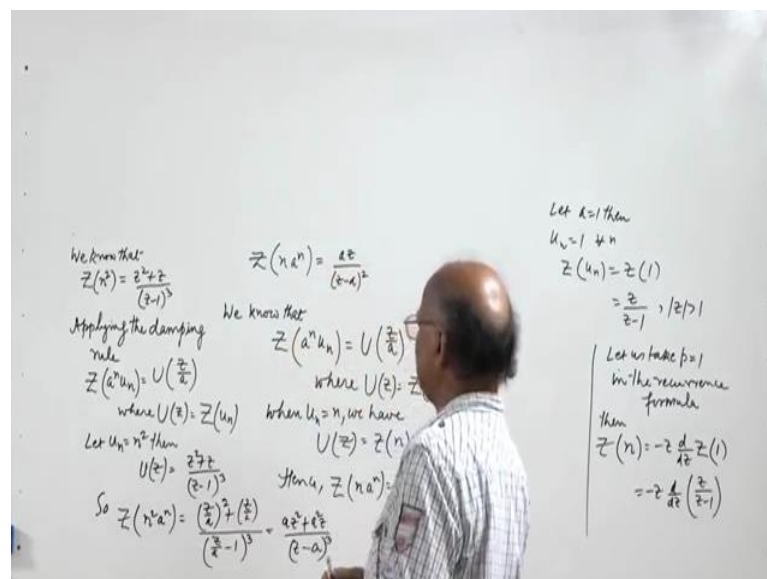 We know that
Z(n²) = z²+z / (z-1)³
Applying the damping
rule
Z(aⁿuₙ) = U(z/a)
where U(z) = Z(uₙ)
Let uₙ = n² then
U(z) = z²+z / (z-1)³
So Z(n²aⁿ) = (z/a)² + (z/a) / (z/a - 1)³ = az²+a²z / (z-a)³
Z(naⁿ) = az / (z-a)²
We know that
Z(aⁿuₙ) = U(z/a)
where U(z) = Z
when uₙ = n, we have
U(z) = Z(n)
Hence, Z(naⁿ) =
Let a=1 then
uₙ = 1 ∀ n
Z(uₙ) = Z(1)
= z / z-1 , |z|>1
Let us take p=1
in the recurrence
formula
Then
Z(n) = -z d/dz Z(1)
= -z d/dz (z / z-1)